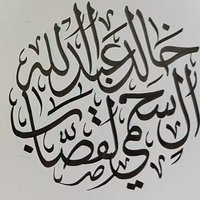 خالد عبدالله
السحيمي القصّاب